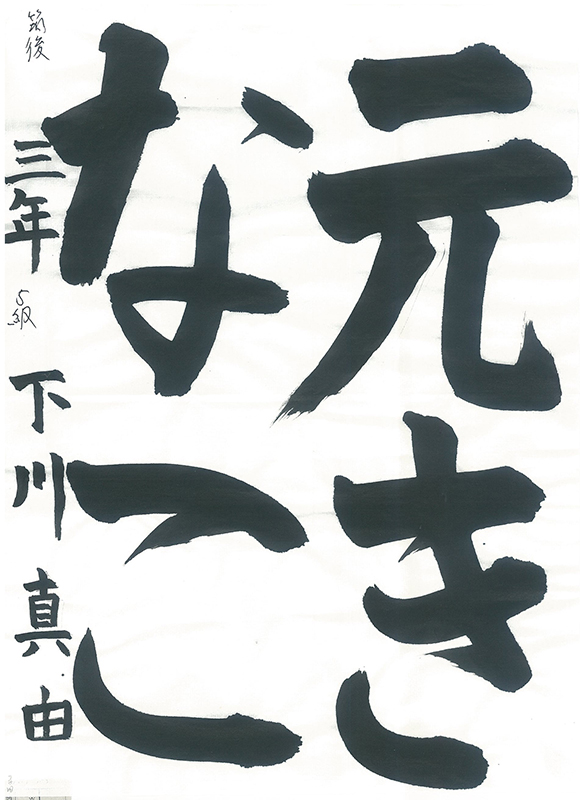 元き
なこ
筑後
三年 5級 下川 真由